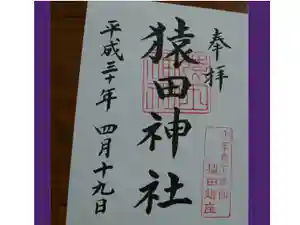 奉拝
猿田神社
平成三十年 四月十九日